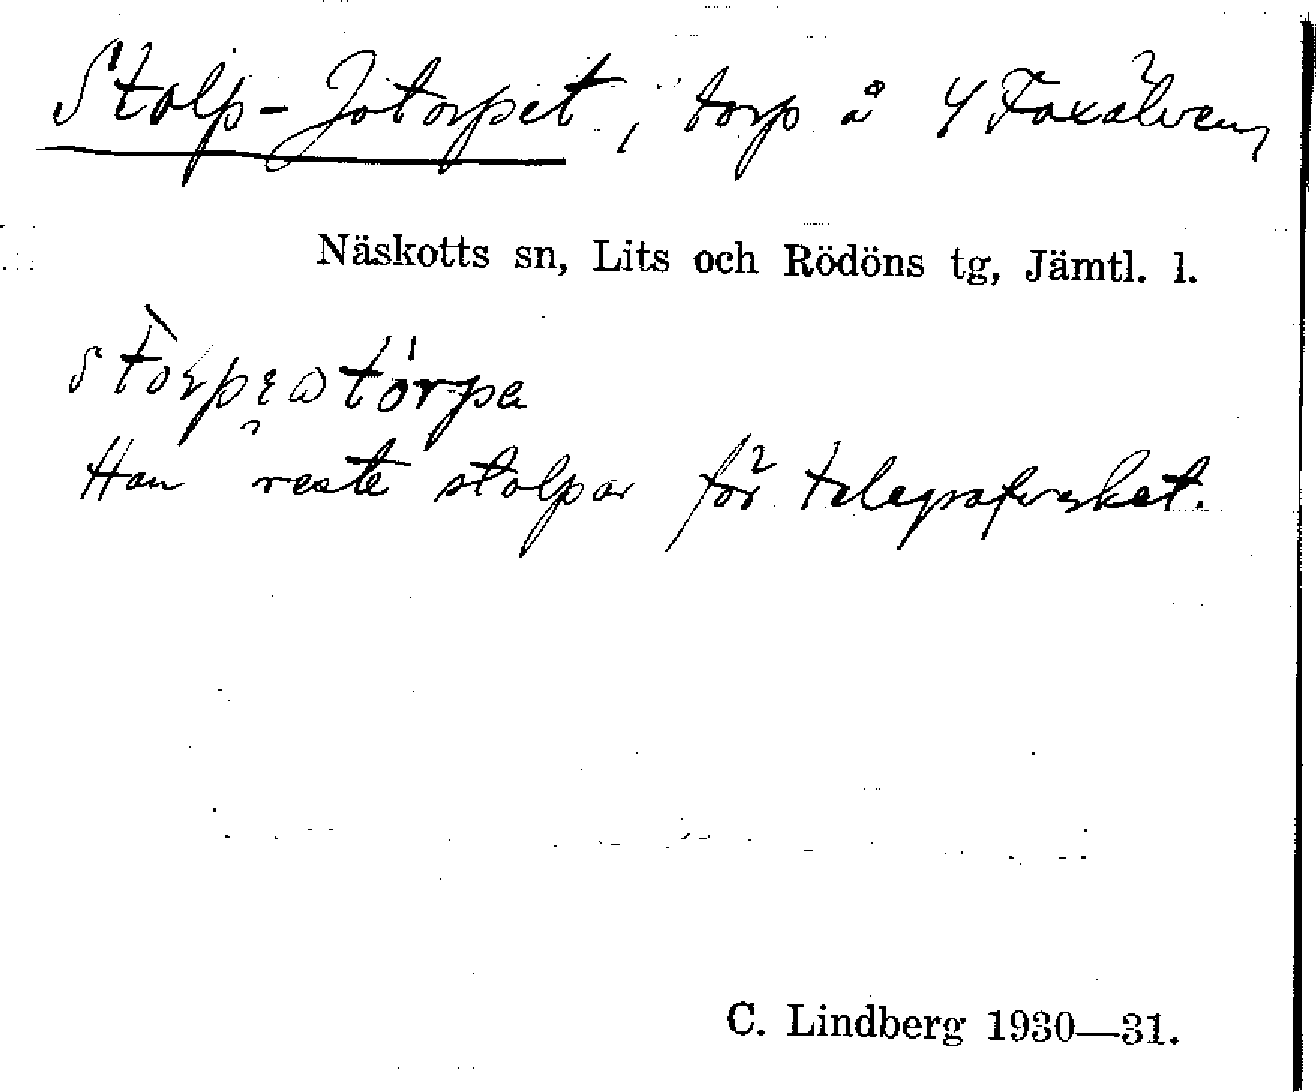 Stolp-Jotorpet, torp å 4 Faxälven,
Näskotts sn, Lits och Rödöns tg, Jämtl. l.
Han reste stolpar för telegrafverket.
C. Lindberg 1930—31.